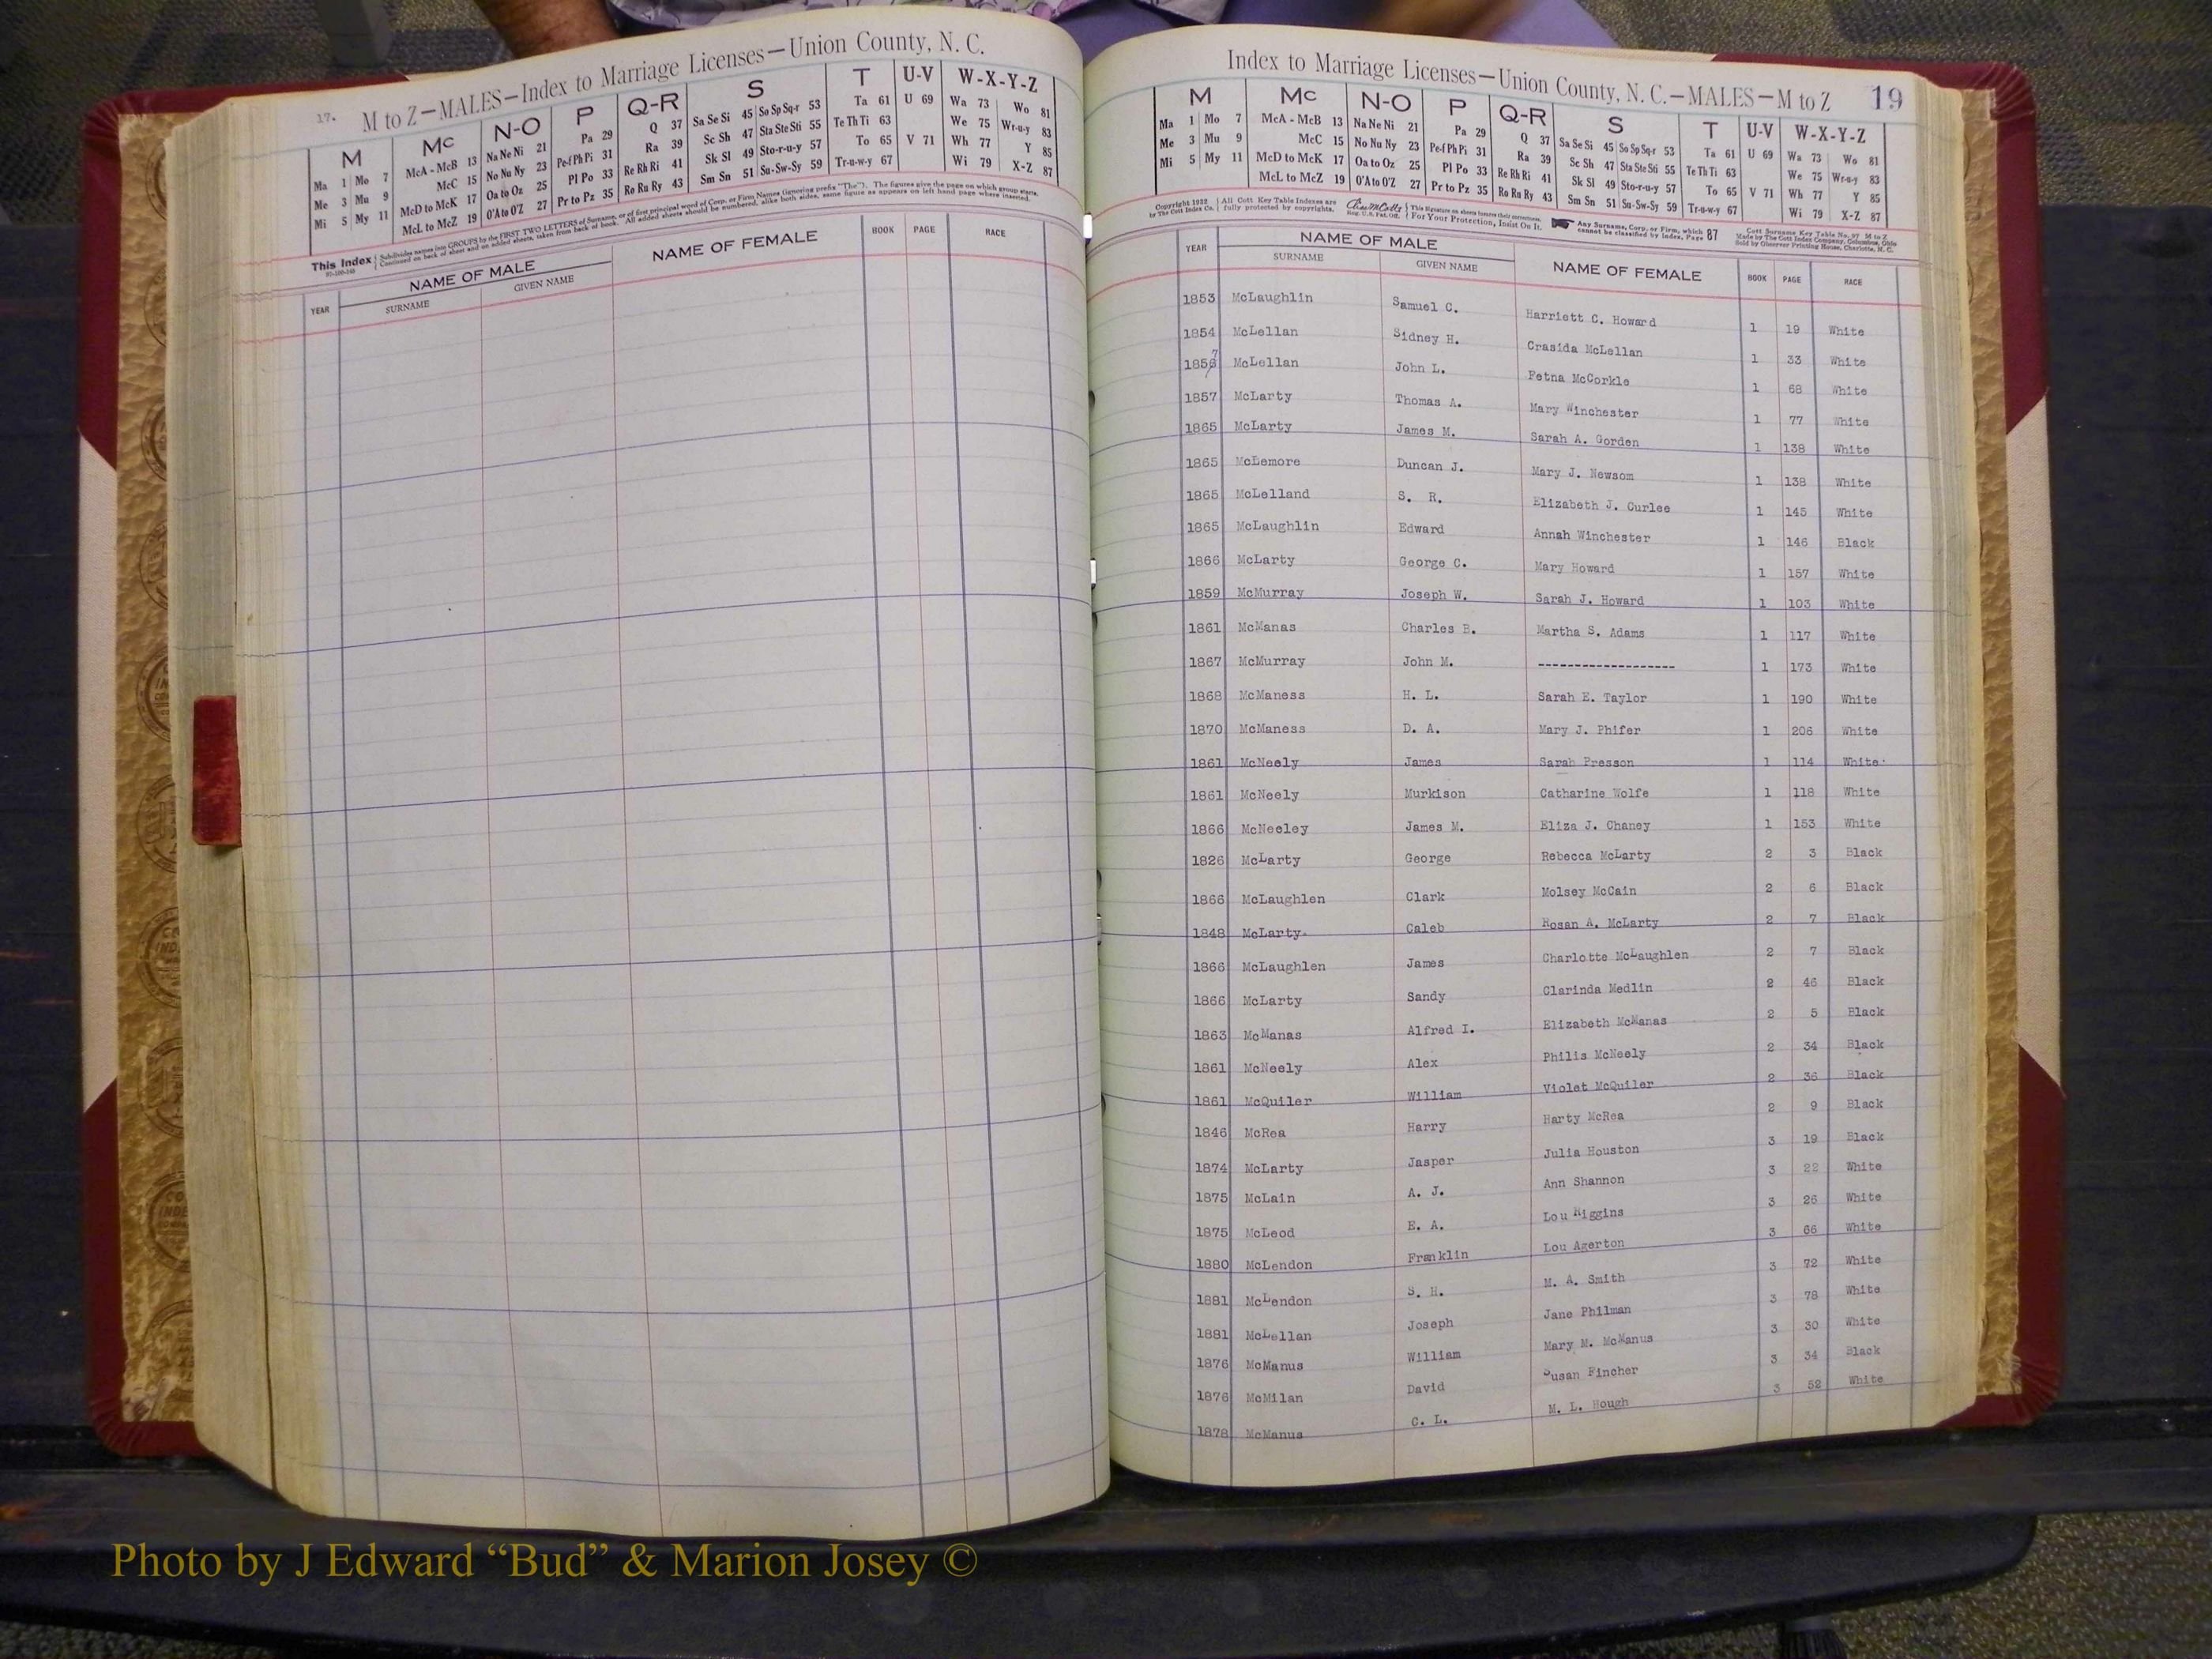 17.
M to Z—MALES—Index to Marriage Licenses—Union County, N. C.
M Mc N-O P Q-R S T U-V W-X-Y-Z
Ma 1 Mo 7 McA - McB 13 Na Ne Ni 21 Pa 29 Q 37 Sa Se Si 45 So Sp Sq-r 53 Ta 61 U 69 Wa 73 Wo 81
Me 3 Mu 9 McC 15 No Nu Ny 23 Pe-f Ph Pi 31 Ra 39 Sc Sh 47 Sta Ste Sti 55 Te Th Ti 63 We 75 Wr-u-y 83
Mi 5 My 11 McD to McK 17 Oa to Oz 25 Pl Po 33 Re Rh Ri 41 Sk Sl 49 Sto-r-u-y 57 To 65 V 71 Wh 77 Y 85
McL to McZ 19 O'A to O'Z 27 Pr to Pz 35 Ro Ru Ry 43 Sm Sn 51 Su-Sw-Sy 59 Tr-u-w-y 67 Wi 79 X-Z 87
This Index Subdivides names into GROUPS by the FIRST TWO LETTERS of Surname, or of first principal word of Corp. or Firm Names (ignoring prefix "The"). The figures give the page on which group starts.
Continued on back of sheet and on added sheets, taken from back of book. All added sheets should be numbered, alike both sides, same figure as appears on left hand page where inserted.
YEAR NAME OF MALE NAME OF FEMALE BOOK PAGE RACE
SURNAME GIVEN NAME
Index to Marriage Licenses—Union County, N. C.—MALES—M to Z 19
M Mc N-O P Q-R S T U-V W-X-Y-Z
Ma 1 Mo 7 McA - McB 13 Na Ne Ni 21 Pa 29 Q 37 Sa Se Si 45 So Sp Sq-r 53 Ta 61 U 69 Wa 73 Wo 81
Me 3 Mu 9 McC 15 No Nu Ny 23 Pe-f Ph Pi 31 Ra 39 Sc Sh 47 Sta Ste Sti 55 Te Th Ti 63 We 75 Wr-u-y 83
Mi 5 My 11 McD to McK 17 Oa to Oz 25 Pl Po 33 Re Rh Ri 41 Sk Sl 49 Sto-r-u-y 57 To 65 V 71 Wh 77 Y 85
McL to McZ 19 O'A to O'Z 27 Pr to Pz 35 Ro Ru Ry 43 Sm Sn 51 Su-Sw-Sy 59 Tr-u-w-y 67 Wi 79 X-Z 87
Copyright 1932 All Cott Key Table Indexes are For Your Protection, Insist On It. Any Surname, Corp. or Firm, which
by The Cott Index Co. fully protected by copyrights. cannot be classified by Index, Page 87
Cott Surname Key Table No. 97 M to Z
Made by The Cott Index Company, Columbus, Ohio
Sold by Observer Printing House, Charlotte, N. C.
YEAR NAME OF MALE NAME OF FEMALE BOOK PAGE RACE
SURNAME GIVEN NAME
1853 McLaughlin Samuel C. Harriett C. Howard 1 19 White
1854 McLellan Sidney H. Crasida McLellan 1 33 White
1857 McLellan John L. Fetna McCorkle 1 68 White
1857 McLarty Thomas A. Mary Winchester 1 77 White
1865 McLarty James M. Sarah A. Gorden 1 138 White
1865 McLemore Duncan J. Mary J. Newsom 1 138 White
1865 McLelland S. R. Elizabeth J. Curlee 1 145 White
1865 McLaughlin Edward Annah Winchester 1 146 Black
1866 McLarty George C. Mary Howard 1 157 White
1859 McMurray Joseph W. Sarah J. Howard 1 103 White
1861 McManas Charles B. Martha S. Adams 1 117 White
1867 McMurray John M. -------------------- 1 173 White
1868 McManess H. L. Sarah E. Taylor 1 190 White
1870 McManess D. A. Mary J. Phifer 1 206 White
1861 McNeely James Sarah Presson 1 114 White
1861 McNeely Murkison Catharine Wolfe 1 118 White
1866 McNeeley James M. Eliza J. Chaney 1 153 White
1826 McLarty George Rebecca McLarty 2 3 Black
1866 McLaughlen Clark Molsey McCain 2 6 Black
1848 McLarty Caleb Rosan A. McLarty 2 7 Black
1866 McLaughlen James Charlotte McLaughlen 2 7 Black
1866 McLarty Sandy Clarinda Medlin 2 46 Black
1863 McManas Alfred I. Elizabeth McManas 2 5 Black
1861 McNeely Alex Philis McNeely 2 34 Black
1861 McQuiler William Violet McQuiler 2 36 Black
1846 McRea Harry Harty McRea 2 9 Black
1874 McLarty Jasper Julia Houston 3 19 Black
1875 McLain A. J. Ann Shannon 3 22 White
1875 McLeod E. A. Lou Higgins 3 26 White
1880 McLendon Franklin Lou Agerton 3 66 White
1881 McLendon S. H. M. A. Smith 3 72 White
1881 McLellan Joseph Jane Philman 3 78 White
1876 McManus William Mary M. McManus 3 30 White
1876 McMilan David Susan Fincher 3 34 Black
1878 McManus C. L. M. L. Hough 3 52 White
Photo by J Edward “Bud” & Marion Josey ©